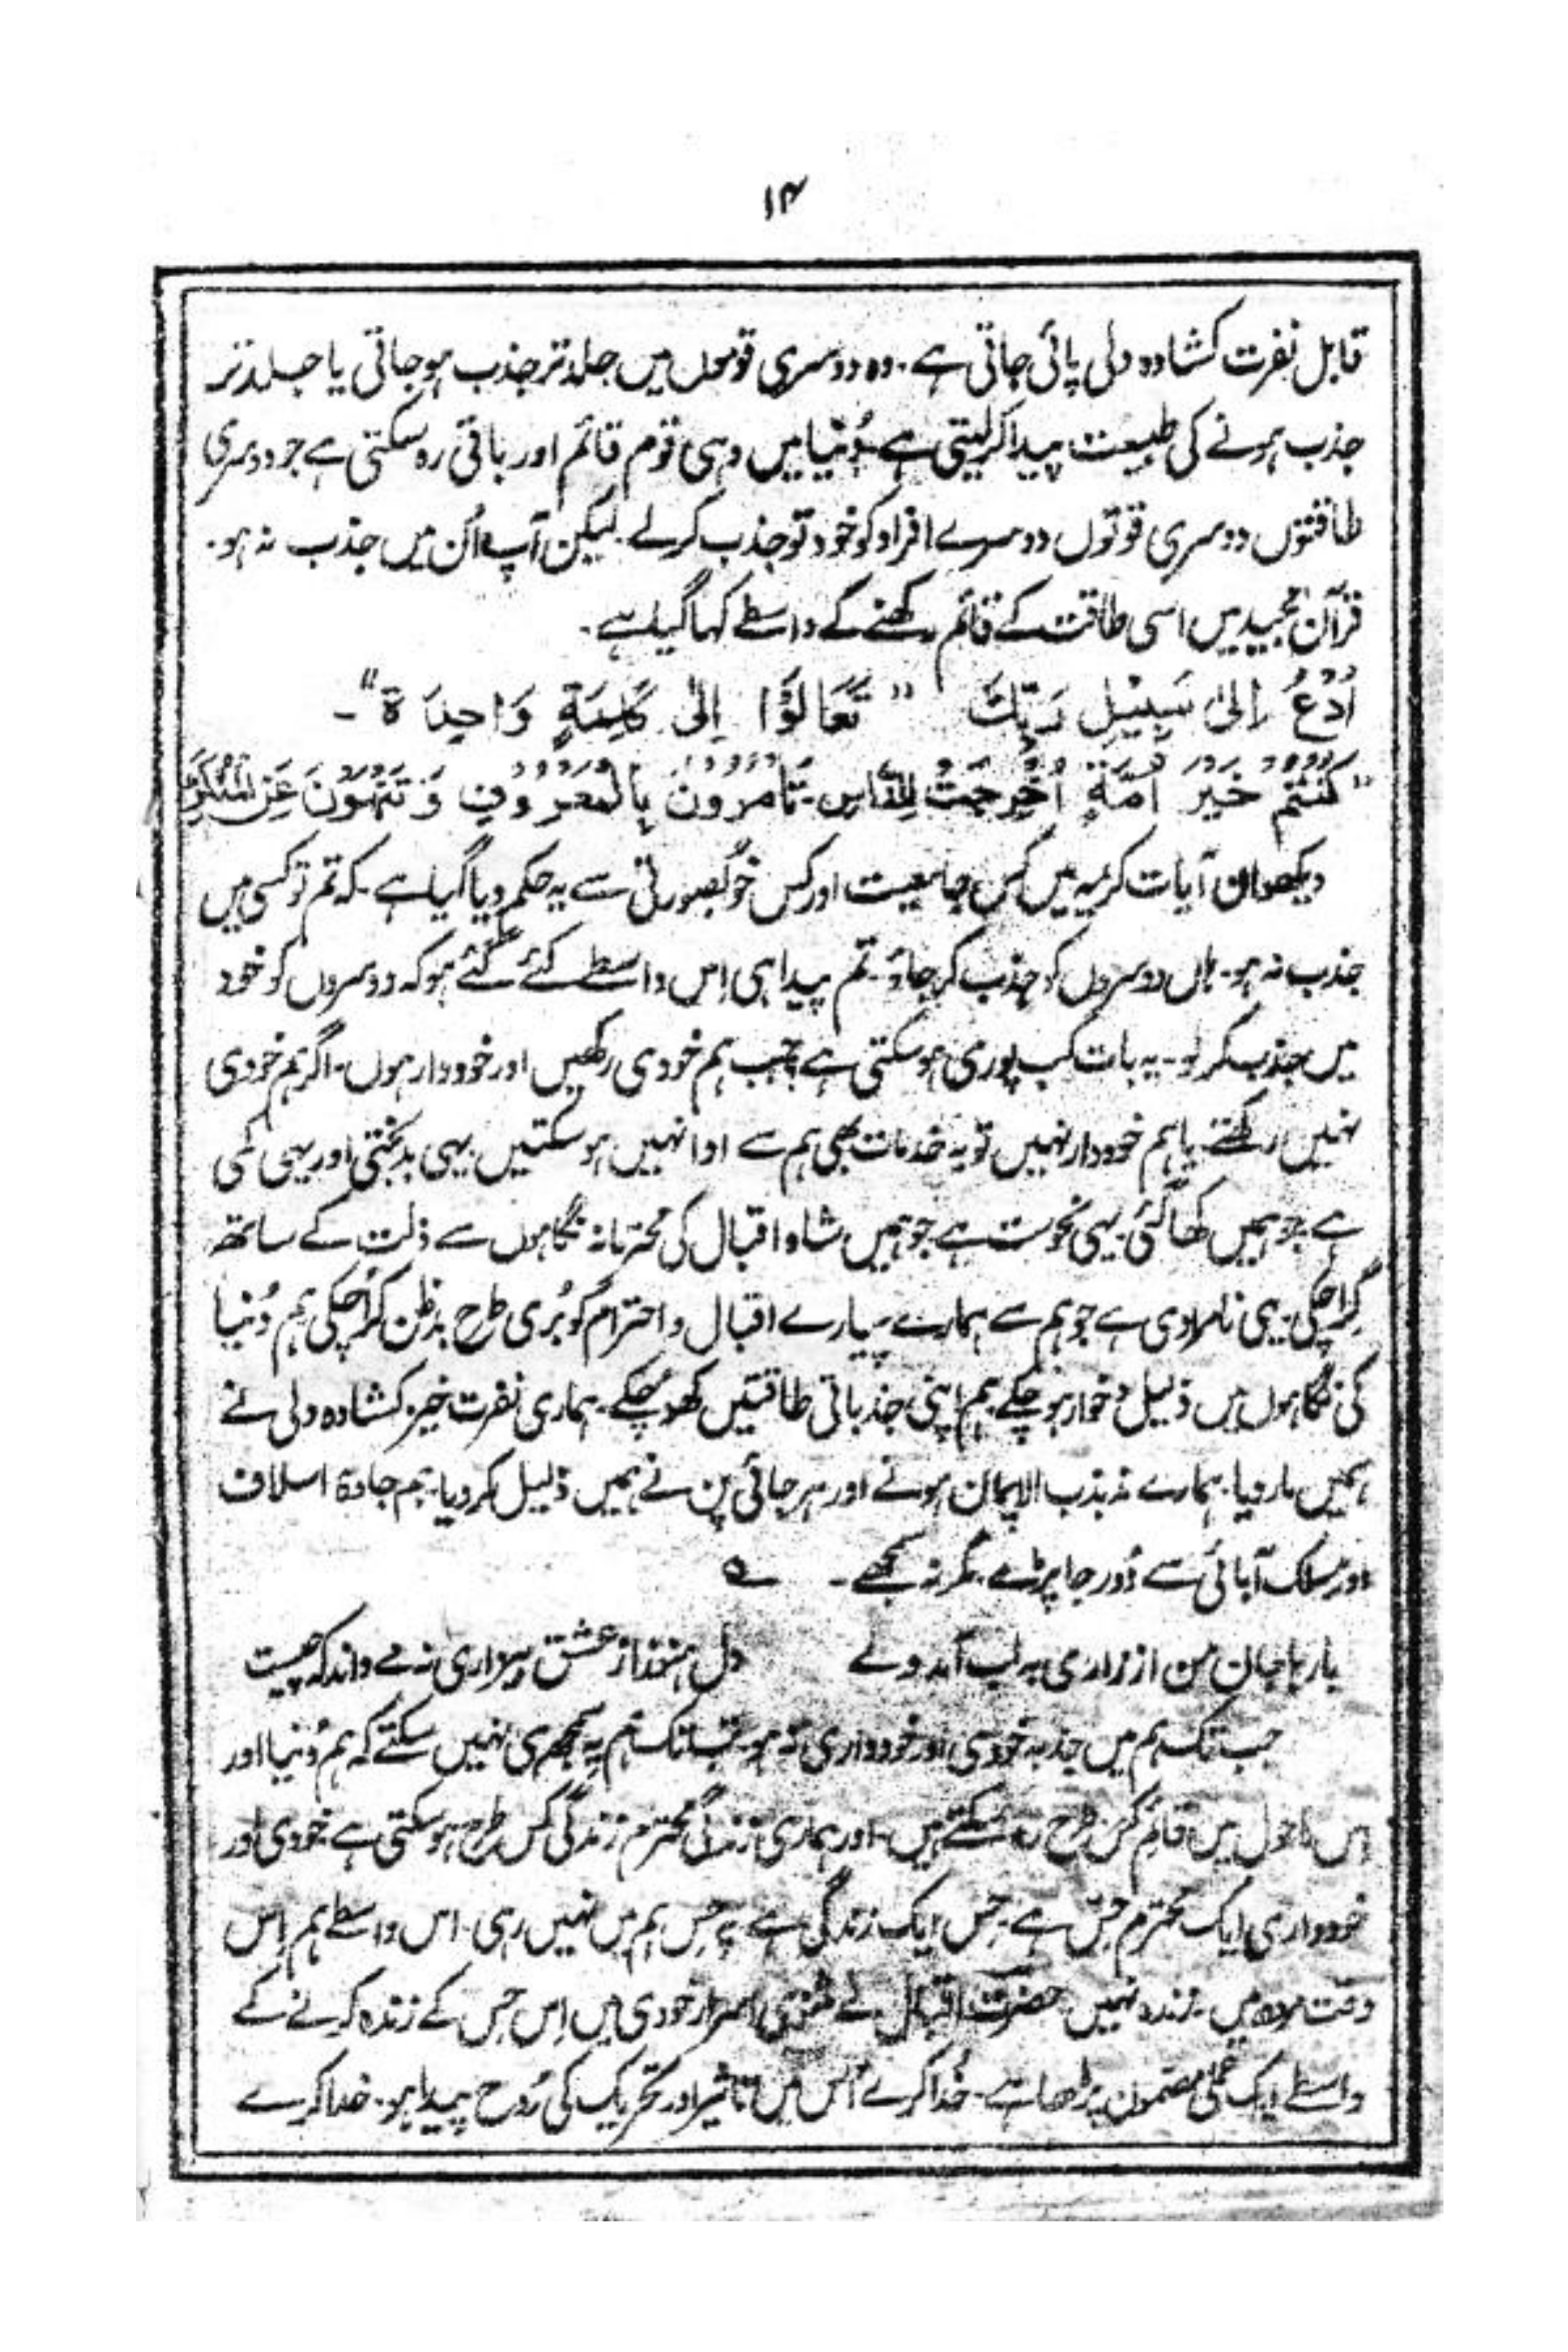 ۱۴
قابل نفرت کشادہ دلی پائی جاتی ہے۔ وہ دوسری قوموں میں جلد تر جذب ہو جاتی یا جلد تر
جذب ہونے کی طبیعت پیدا کر لیتی ہے۔ دُنیا میں وہی قوم قائم اور باقی رہ سکتی ہے جو دوسری
طاقتوں دوسری قوتوں دوسرے افراد کو خود تو جذب کرلے۔ لیکن آپ اُن میں جذب نہ ہو۔
قرآن مجید میں اسی طاقت کے قائم رکھنے کے واسطے کہا گیا ہے۔
اُدْعُ اِلیٰ سَبِیْلِ رَبِّکَ " تَعَالَوْا اِلیٰ کَلِمَۃٍ وَاحِدَۃ"۔
"کُنْتُمْ خَیْرَ اُمَّۃٍ اُخْرِجَتْ لِلنَّاسِ۔ تَأمُرُوْنَ بِالْمَعْرُوْفِ وَ تَنْہَوْنَ عَنِ الْمُنْکَرِ"
دیکھو ان آیات کریمہ میں کس جامعیت اور کس خوبصورتی سے یہ حکم دیا گیا ہے۔ کہ تم تو کسی میں
جذب نہ ہو۔ ہاں دوسروں کو جذب کر جاؤ۔ تم پیدا ہی اِس واسطے کئے گئے ہو کہ دوسروں کو خود
میں جذب کر لو۔ یہ بات کب پوری ہو سکتی ہے جب ہم خودی رکھیں اور خوددار ہوں۔ اگر ہم خودی
نہیں رکھتے۔ یا ہم خوددار نہیں تو یہ خدمات بھی ہم سے ادا نہیں ہو سکتیں۔ یہی بدبختی اور یہی کمی
ہے جو ہمیں کھا گئی۔ یہی نحوست ہے جو ہمیں شاہ اقبال کی محترمانہ نگاہوں سے ذلت کے ساتھ
گِرا چکی۔ یہی نامرادی ہے جو ہم سے ہمارے پیارے اقبال و احترام کو بُری طرح بدظن کر اچکی ہم دُنیا
کی نگاہوں میں ذلیل و خوار ہو چکے۔ ہم اپنی جذباتی طاقتیں کھو چکے۔ ہماری نفرت خیز کشادہ دلی نے
ہمیں مار دیا۔ ہمارے مذبذب الایمان ہونے اور ہرجائی پن نے ہمیں ذلیل کر دیا۔ ہم جادۃ اسلاف
اور مسلک آبائی سے دُور جا پڑے۔ مگر نہ سمجھے۔ ؎
یارہا جان من از زاری بہ لب آمد ولے دل ہنوز از عشق بیزاری نہ مے داند کہ چیست
جب تک ہم میں جذبہ خودی اور خودداری نہ ہو تب تک ہم یہ سمجھ ہی نہیں سکتے کہ ہم دُنیا اور
اِس ماحول میں قائم کس طرح رہ سکتے ہیں۔ اور ہماری زندگی محترم زندگی کس طرح ہو سکتی ہے۔ خودی اور
خودداری ایک محترم حِسّ ہے۔ حِس ایک زندگی ہے یہ حِس ہم میں نہیں رہی۔ اس واسطے ہم اِس
وقت مردہ ہیں۔ زندہ نہیں۔ حضرت اقبال نے مثنوی اسرار خودی میں اِس حِس کے زندہ کرنے کے
واسطے ایک عملی مضمون پڑھا ہے۔ خُدا کرے اُس میں تاثیر اور تحریک کی رُوح پیدا ہو۔ خدا کرے